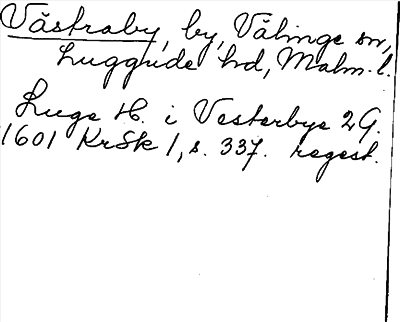 Västraby, by, Välinge sn,
Luggude hd, Malm. l.
Luge H. i Vesterbye 2 G.
1601 KrSk 1, s. 337. regest.